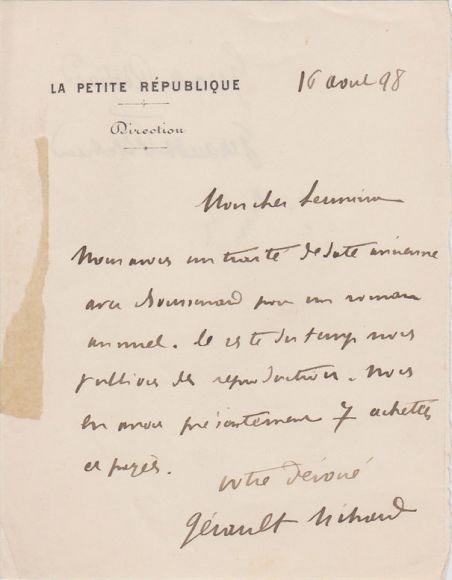 LA PETITE RÉPUBLIQUE
Direction
16 août 98
Mon cher Lermina
Nous avons un traité de date ancienne
avec Boussenard pour un roman
annuel. Le reste du temps nous
publions des reproductions. Nous
en avons présentement 7 achetés
et payés.
votre dévoué
Gérault Richard